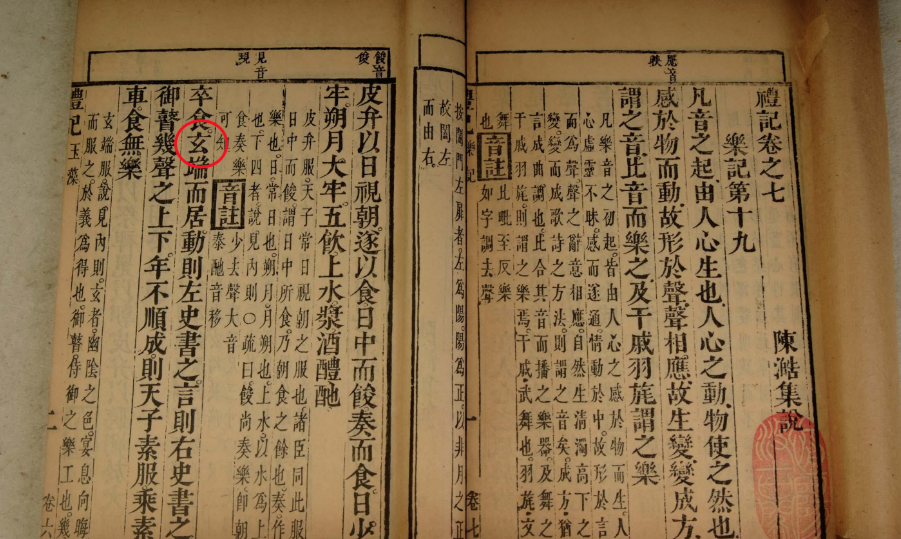 禮記卷之七
陳澔集說
樂記第十九
凡音之起由人心生也人心之動物使之然也
感於物而動故形於聲聲相應故生變變成方
謂之音比音而樂之及干戚羽旄謂之樂
凡樂音之初起皆由人心之感於物而生人
心虛靈不昧感而遂通情動於中故形於言
而爲聲聲之辭意相應自然生清濁高下之
變變而成歌詩之方法則謂之音矣成方猶
言成曲調也比合其音而播之樂器及舞之
干戚羽旄則謂之樂焉干戚武舞也羽旄文
舞也 音註 比毗至反樂
如字調去聲
禮記樂記 一 卷七
按闔門左扉者左爲陽陽爲正以非月之正
故闔左
而由右
餕音
俊
見音
現
皮弁以日視朝。遂以食日中而餕奏而食日少
牢。朔月大牢。五飲上水漿酒醴酏
皮弁服天子常日視朝之服也諸臣同此服
日中而餕謂日中所食。乃朝食之餘也奏作
樂也。日常日也。朔月月朔也上水以水爲上
也下四者說見內則○疏曰餕尚奏樂卽朝
食奏樂 音註 少去聲大音
可知 泰酏音移
卒食玄端而居動則左史書之。言則右史書之
御瞽幾聲之上下。年不順成則天子素服乘素
車。食無樂
玄端服說見內則。玄者。幽陰之色。宴息向晦
而服之於義爲得也。御瞽侍御之樂工也。幾
禮記玉藻 二 卷六